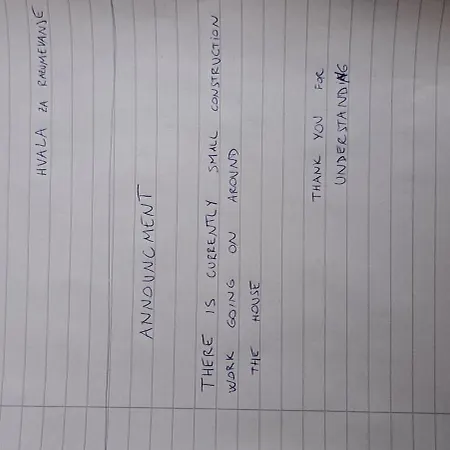 HVALA ZA RAZUMEVANJE
ANNOUNCMENT
THERE IS CURRENTLY SMALL CONSTRUCTION
WORK GOING ON AROUND
THE HOUSE
THANK YOU FOR
UNDERSTANDING